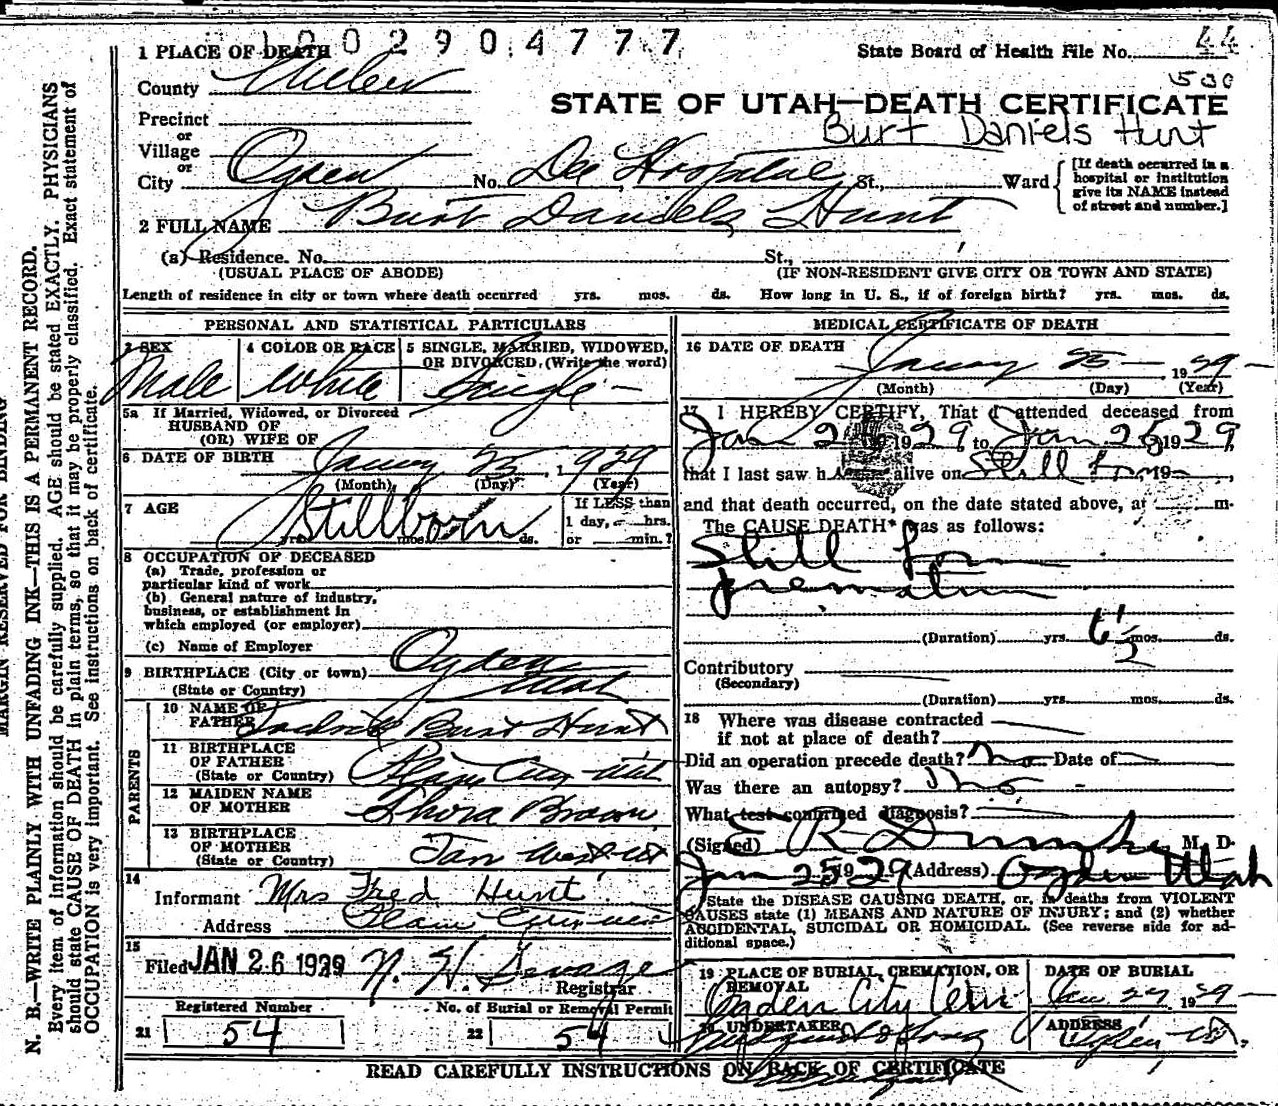 1002904777
1 PLACE OF DEATH
State Board of Health File No. 44
530
County Weber
STATE OF UTAH—DEATH CERTIFICATE
Burt Daniels Hunt
Precinct
or
Village
or
City Ogden No. Dee Hospital St., Ward
[If death occurred in a
hospital or institution
give its NAME instead
of street and number.]
2 FULL NAME Burt Daniels Hunt
(a) Residence. No. St.,
(USUAL PLACE OF ABODE) (IF NON-RESIDENT GIVE CITY OR TOWN AND STATE)
Length of residence in city or town where death occurred yrs. mos. ds. How long in U. S., if of foreign birth? yrs. mos. ds.
PERSONAL AND STATISTICAL PARTICULARS
3 SEX
Male
4 COLOR OR RACE
White
5 SINGLE, MARRIED, WIDOWED,
OR DIVORCED, (Write the word)
Single
5a If Married, Widowed, or Divorced
HUSBAND OF
(OR) WIFE OF
6 DATE OF BIRTH January 25, 1929
(Month) (Day) (Year)
7 AGE
Stillborn
yrs. mos. ds.
If LESS than
1 day, hrs.
or min.?
8 OCCUPATION OF DECEASED
(a) Trade, profession or
particular kind of work
(b) General nature of industry,
business, or establishment in
which employed (or employer)
(c) Name of Employer
9 BIRTHPLACE (City or town) Ogden
(State or Country) Utah
PARENTS
10 NAME OF
FATHER Burt Hunt
11 BIRTHPLACE
OF FATHER
(State or Country) Plain City Utah
12 MAIDEN NAME
OF MOTHER Brown
13 BIRTHPLACE
OF MOTHER
(State or Country)
14
Informant Mrs Fred Hunt
Address Plain City
15
Filed JAN 26 1929
Registrar
Registered Number No. of Burial or Removal Permit
21 54 22 54
MEDICAL CERTIFICATE OF DEATH
16 DATE OF DEATH
January 25 1929
(Month) (Day) (Year)
17 I HEREBY CERTIFY, That I attended deceased from
Jan 1929 to Jan 1929,
that I last saw h alive on Still born 19 ,
and that death occurred, on the date stated above, at m.
The CAUSE DEATH* was as follows:
Still born
premature
(Duration) yrs. 6 1/2 mos. ds.
Contributory
(Secondary)
(Duration) yrs. mos. ds.
18 Where was disease contracted
if not at place of death?
Did an operation precede death? no Date of
Was there an autopsy? no
What test confirmed diagnosis?
(Signed) E R Dumke M. D.
Jan 25 1929 (Address) Ogden Utah
State the DISEASE CAUSING DEATH, or, in deaths from VIOLENT
CAUSES state (1) MEANS AND NATURE OF INJURY; and (2) whether
ACCIDENTAL, SUICIDAL OR HOMICIDAL. (See reverse side for ad-
ditional space.)
19 PLACE OF BURIAL, CREMATION, OR
REMOVAL
Ogden City Cem
DATE OF BURIAL
Jan 27 1929
20 UNDERTAKER
ADDRESS
Ogden Ut.
READ CAREFULLY INSTRUCTIONS ON BACK OF CERTIFICATE
MARGIN RESERVED FOR BINDING
N. B.—WRITE PLAINLY WITH UNFADING INK—THIS IS A PERMANENT RECORD.
Every item of information should be carefully supplied. AGE should be stated EXACTLY. PHYSICIANS
should state CAUSE OF DEATH in plain terms, so that it may be properly classified. Exact statement of
OCCUPATION is very important. See instructions on back of certificate.